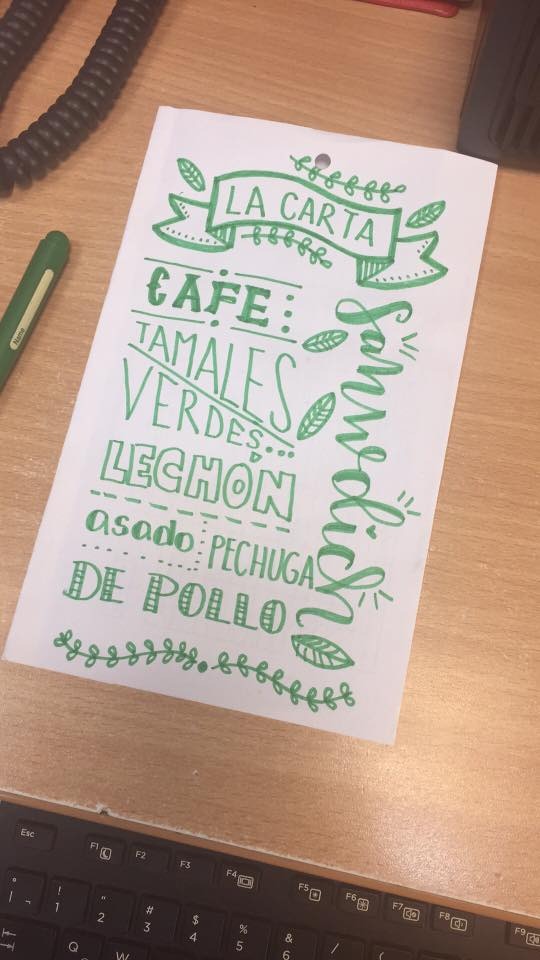 LA CARTA
CAFE
TAMALES
VERDES...
LECHÓN
asado
PECHUGA
DE POLLO
Sanwdich
Name
Esc
F1
F2
F3
F4
F5
F6
F7
F8
F9
° | ¬
! 1
" 2
# 3
$ 4
% 5
& 6
/
(
Q
W